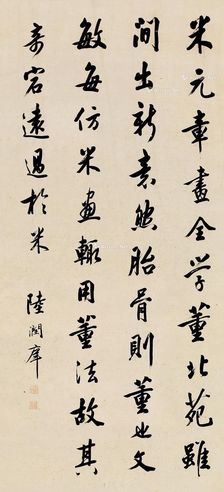 米元章畫全學董北苑雖
間出新意然胎骨則董也文
敏每仿米畫輒用董法故其
奇宕遠過於米 陸潤庠